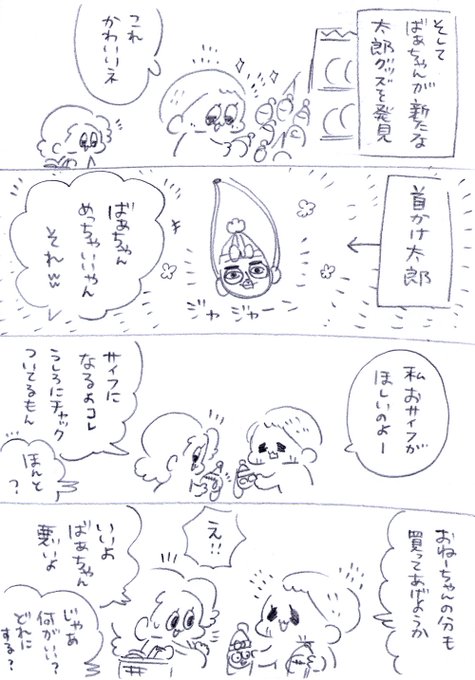 そして
ばぁちゃんが新たな
太郎グッズを発見
これ
かわいいネ
首かけ太郎
ジャジャーン
ばぁちゃん
めっちゃいいやん
それww
私おサイフが
ほしいのよー
サイフに
なるよコレ
うしろにチャック
ついてるもん
ほんと
?
おねーちゃんの分も
買ってあげようか
え!!
いいよ
ばぁちゃん
悪いよ
じゃあ
何がいい?
どれに
する?